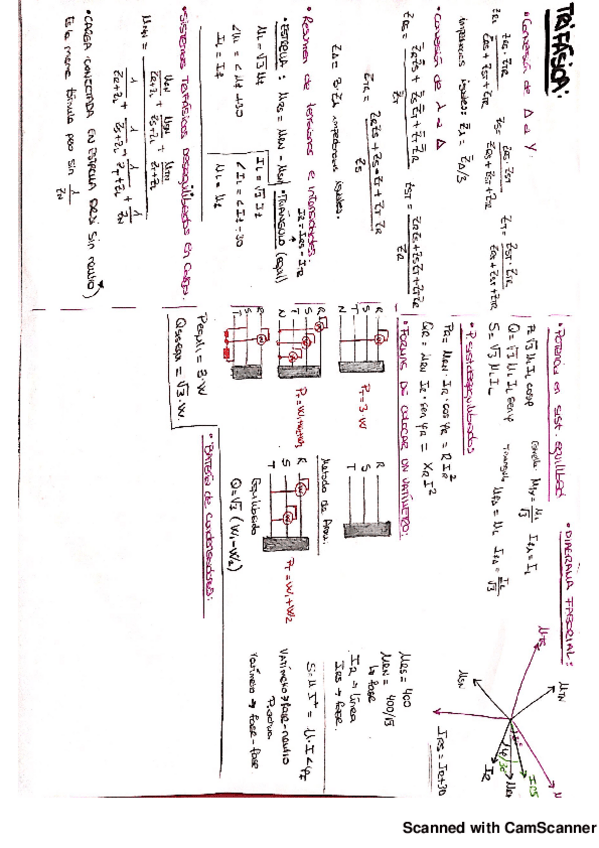 TRIFÁSICA:
• Conversión de Δ a Y.
Z̄R = Z̄RS · Z̄TR / Z̄RS + Z̄ST + Z̄TR
Z̄S = Z̄RS · Z̄ST / Z̄RS + Z̄ST + Z̄TR
Z̄T = Z̄ST · Z̄TR / Z̄TR + Z̄ST + Z̄TR
impedancias iguales: Z̄λ = Z̄Δ/3
• Conversión de λ a Δ
Z̄RS = Z̄RZ̄S + Z̄SZ̄T + Z̄TZ̄R / Z̄T
Z̄ST = Z̄RZ̄S + Z̄SZ̄T + Z̄TZ̄R / Z̄R
Z̄TR = Z̄RZ̄S + Z̄SZ̄T + Z̄TZ̄R / Z̄S
Z̄Δ = 3·Z̄λ impedancias iguales.
• Resumen de tensiones e intensidades:
• ESTRELLA: URS = URN - USN
UL = √3 Uf
∠UL = ∠Uf + 30
IL = If
• TRIÁNGULO (equil)
IR = IRS - ITR
IL = √3 If
∠IL = ∠If - 30
UL = Uf
• SISTEMAS TRIFÁSICOS DESEQUILIBRADOS EN CARGA:
UN'N = URN/ZR+ZL + USN/ZS+ZL + UTN/ZT+ZL / 1/ZR+ZL + 1/ZS+ZL + 1/ZT+ZL + 1/ZN
• CARGA CONECTADA EN ESTRELLA DESEQ sin neutro)
Es la misma fórmula pero sin 1/ZN
• Potencia en sist. equilibrad
P = √3 UL IL cosφ
Q = √3 UL IL senφ
S = √3 UL IL
Estrella: Ufλ = UL/√3 Ifλ = IL
Triángulo UfΔ = UL IfΔ = IL/√3
• P. sist desequilibrados
PR = URN · IR · cos φR = R IR²
QR = URN IR · sen φR = XR I²
• FORMAS DE COLOCAR UN VATÍMETRO:
R
S
T
N
PT = 3·W
R
S
T
N
PT = W1+W2+W3
R
S
T
Pequil = 3·W
Qsseqs = √3·W.
R
S
T
Método de Aron.
R
S
T
PT = W1 + W2
Equilibrado
Q = √3 (W1 - W2)
• BATERÍA DE CONDENSADORES:
• DIAGRAMA FASORIAL:
UTS
UTN
USN
U
URN
IRS
IR
φ
30
IRS = IR+30
URS = 400
URN = 400/√3
↳ fase
IR → línea
IRS → fase.
S: U I* = U·I ∠φz
Vatímetro → fase-neutro
P.activa
varímetro → fase-fase
Scanned with CamScanner